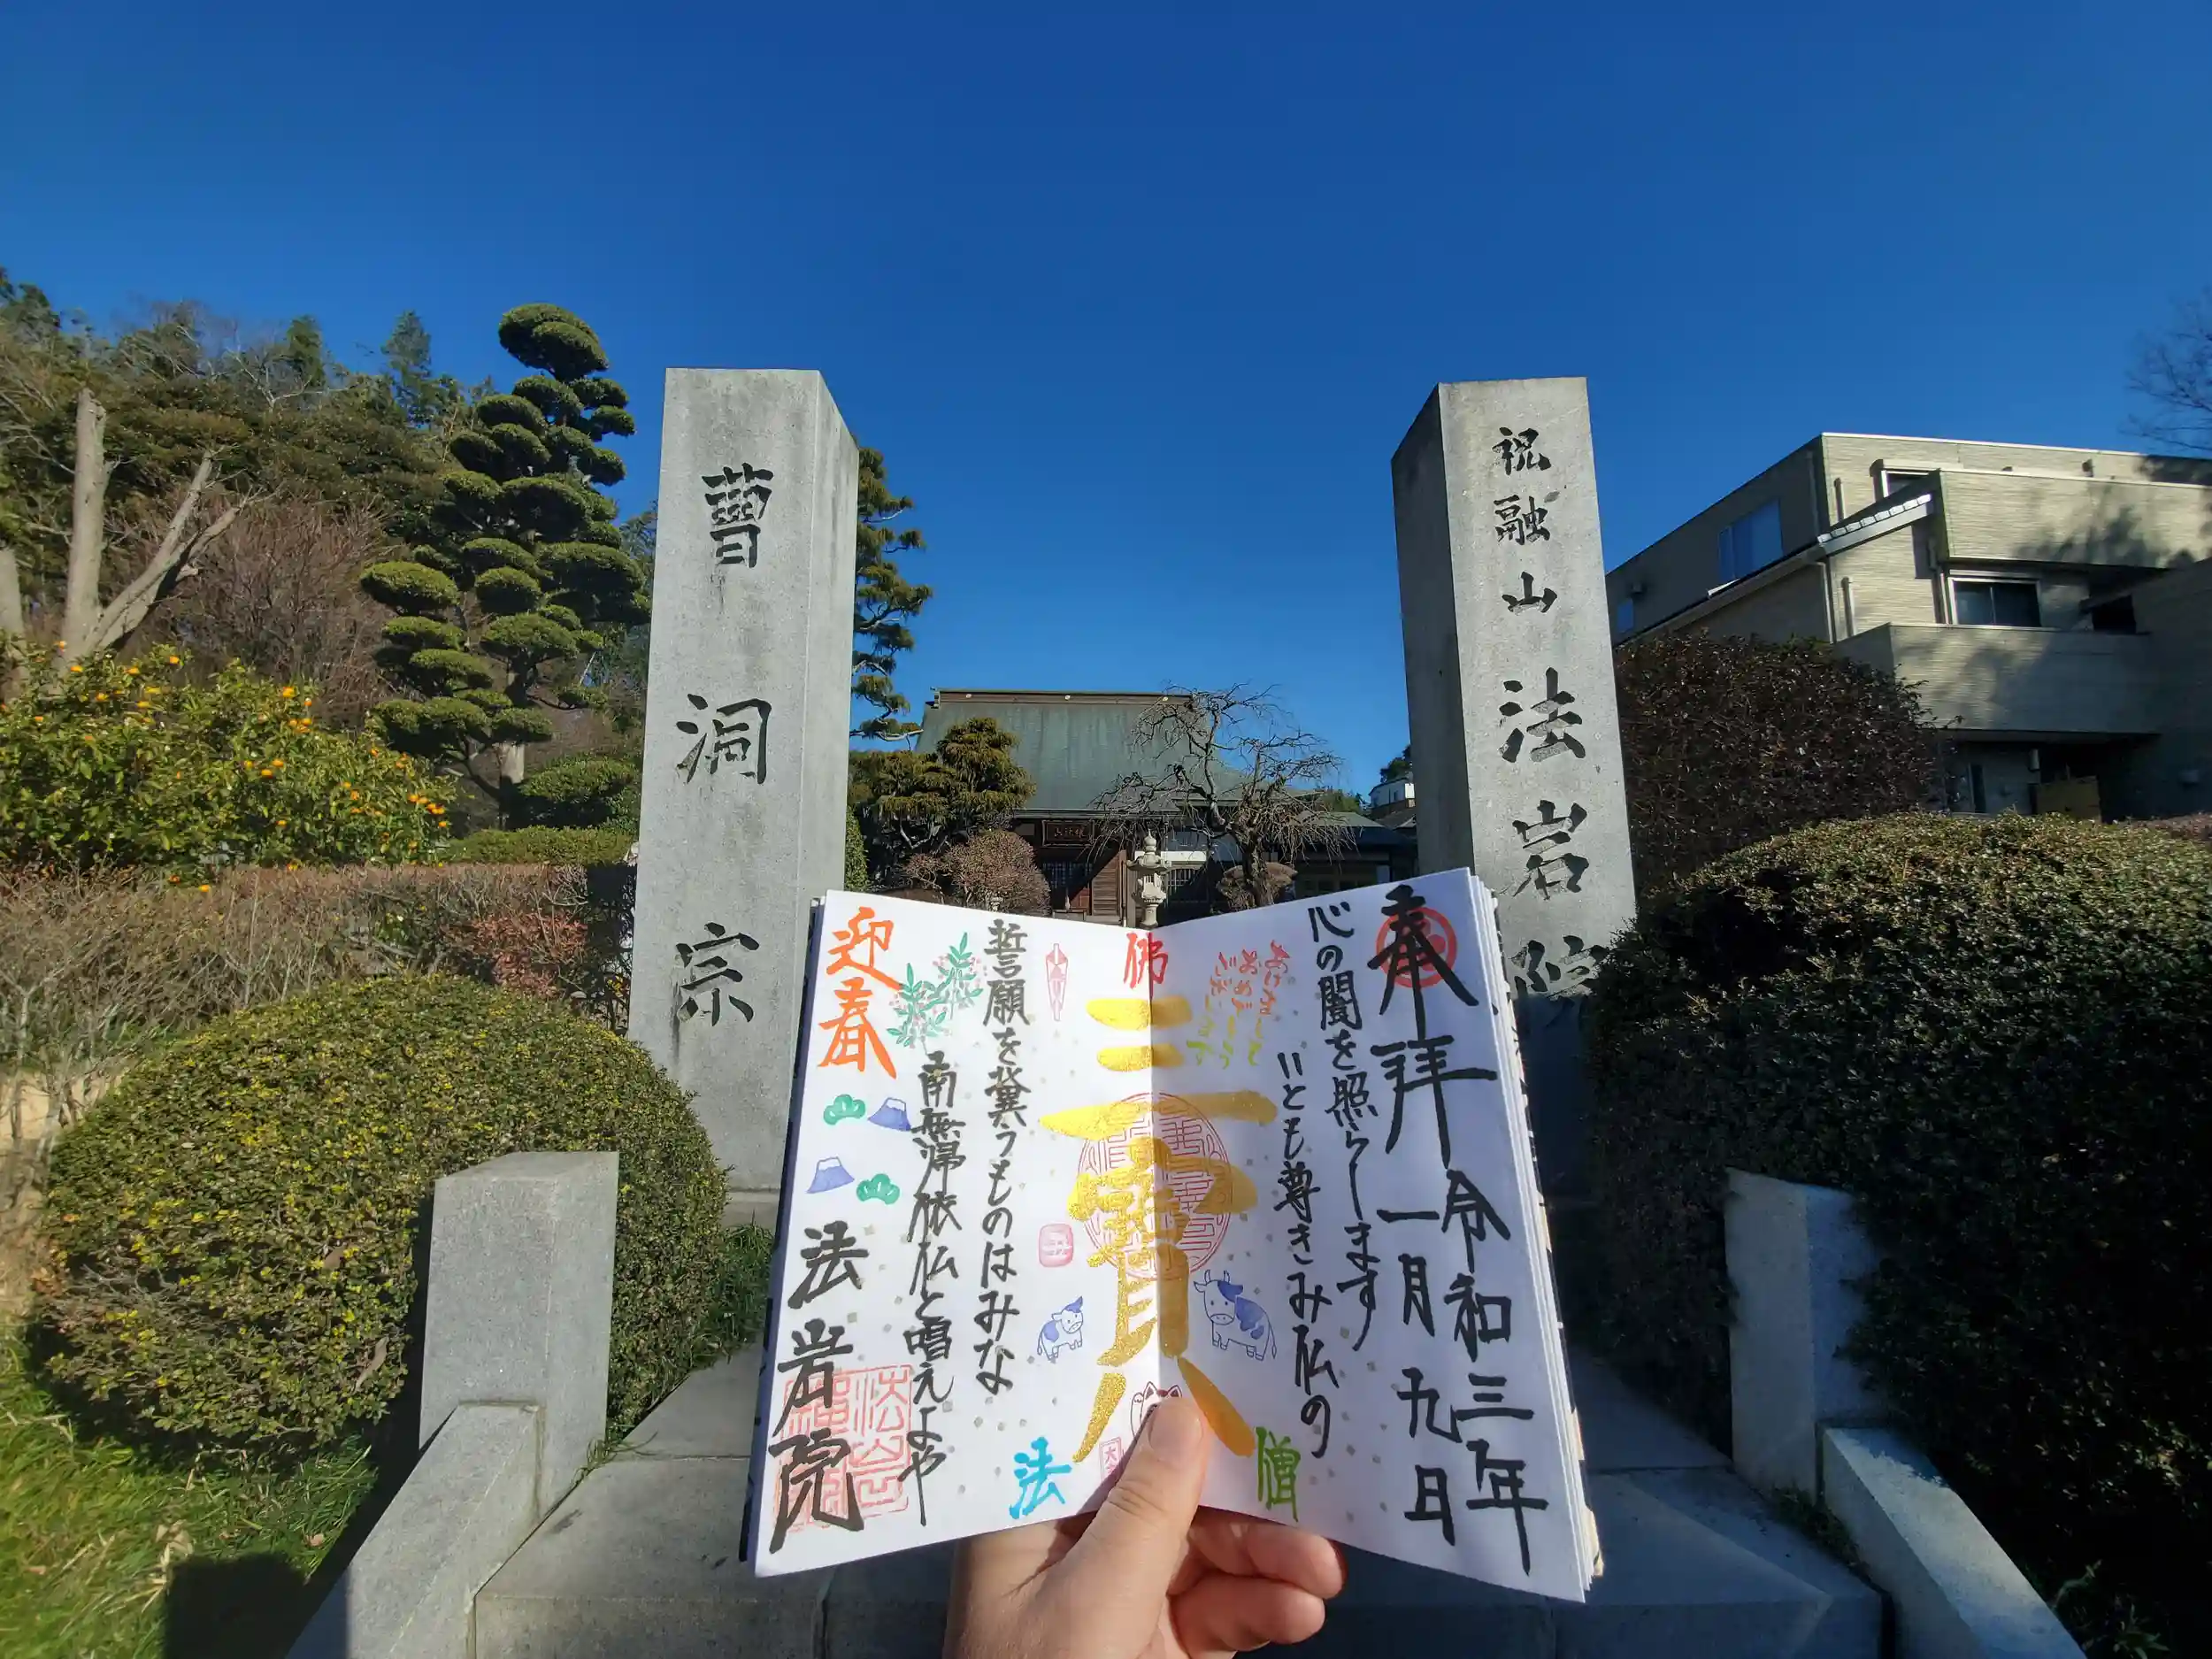 曹洞宗
祝融山法岩院
奉拝
令和三年
一月九日
心の闇を照らします
いとも尊きみ仏の
あけまして
おめでとう
ございます
佛
三寳
僧
法
誓願を冀うものはみな
南無帰依仏と唱えよや
迎春
法岩院